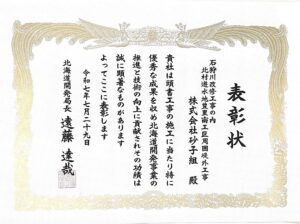 表彰状
石狩川改修工事の内
北村遊水地豊里南工区周囲堤外工事
株式会社砂子組 殿
貴社は頭書工事の施工に当たり特に
優秀な成果を収め北海道開発事業の
推進と技術の向上に貢献されその功績は
誠に顕著なものがあります
よってここに表彰します
令和七年七月二十九日
北海道開発局長 遠藤達哉